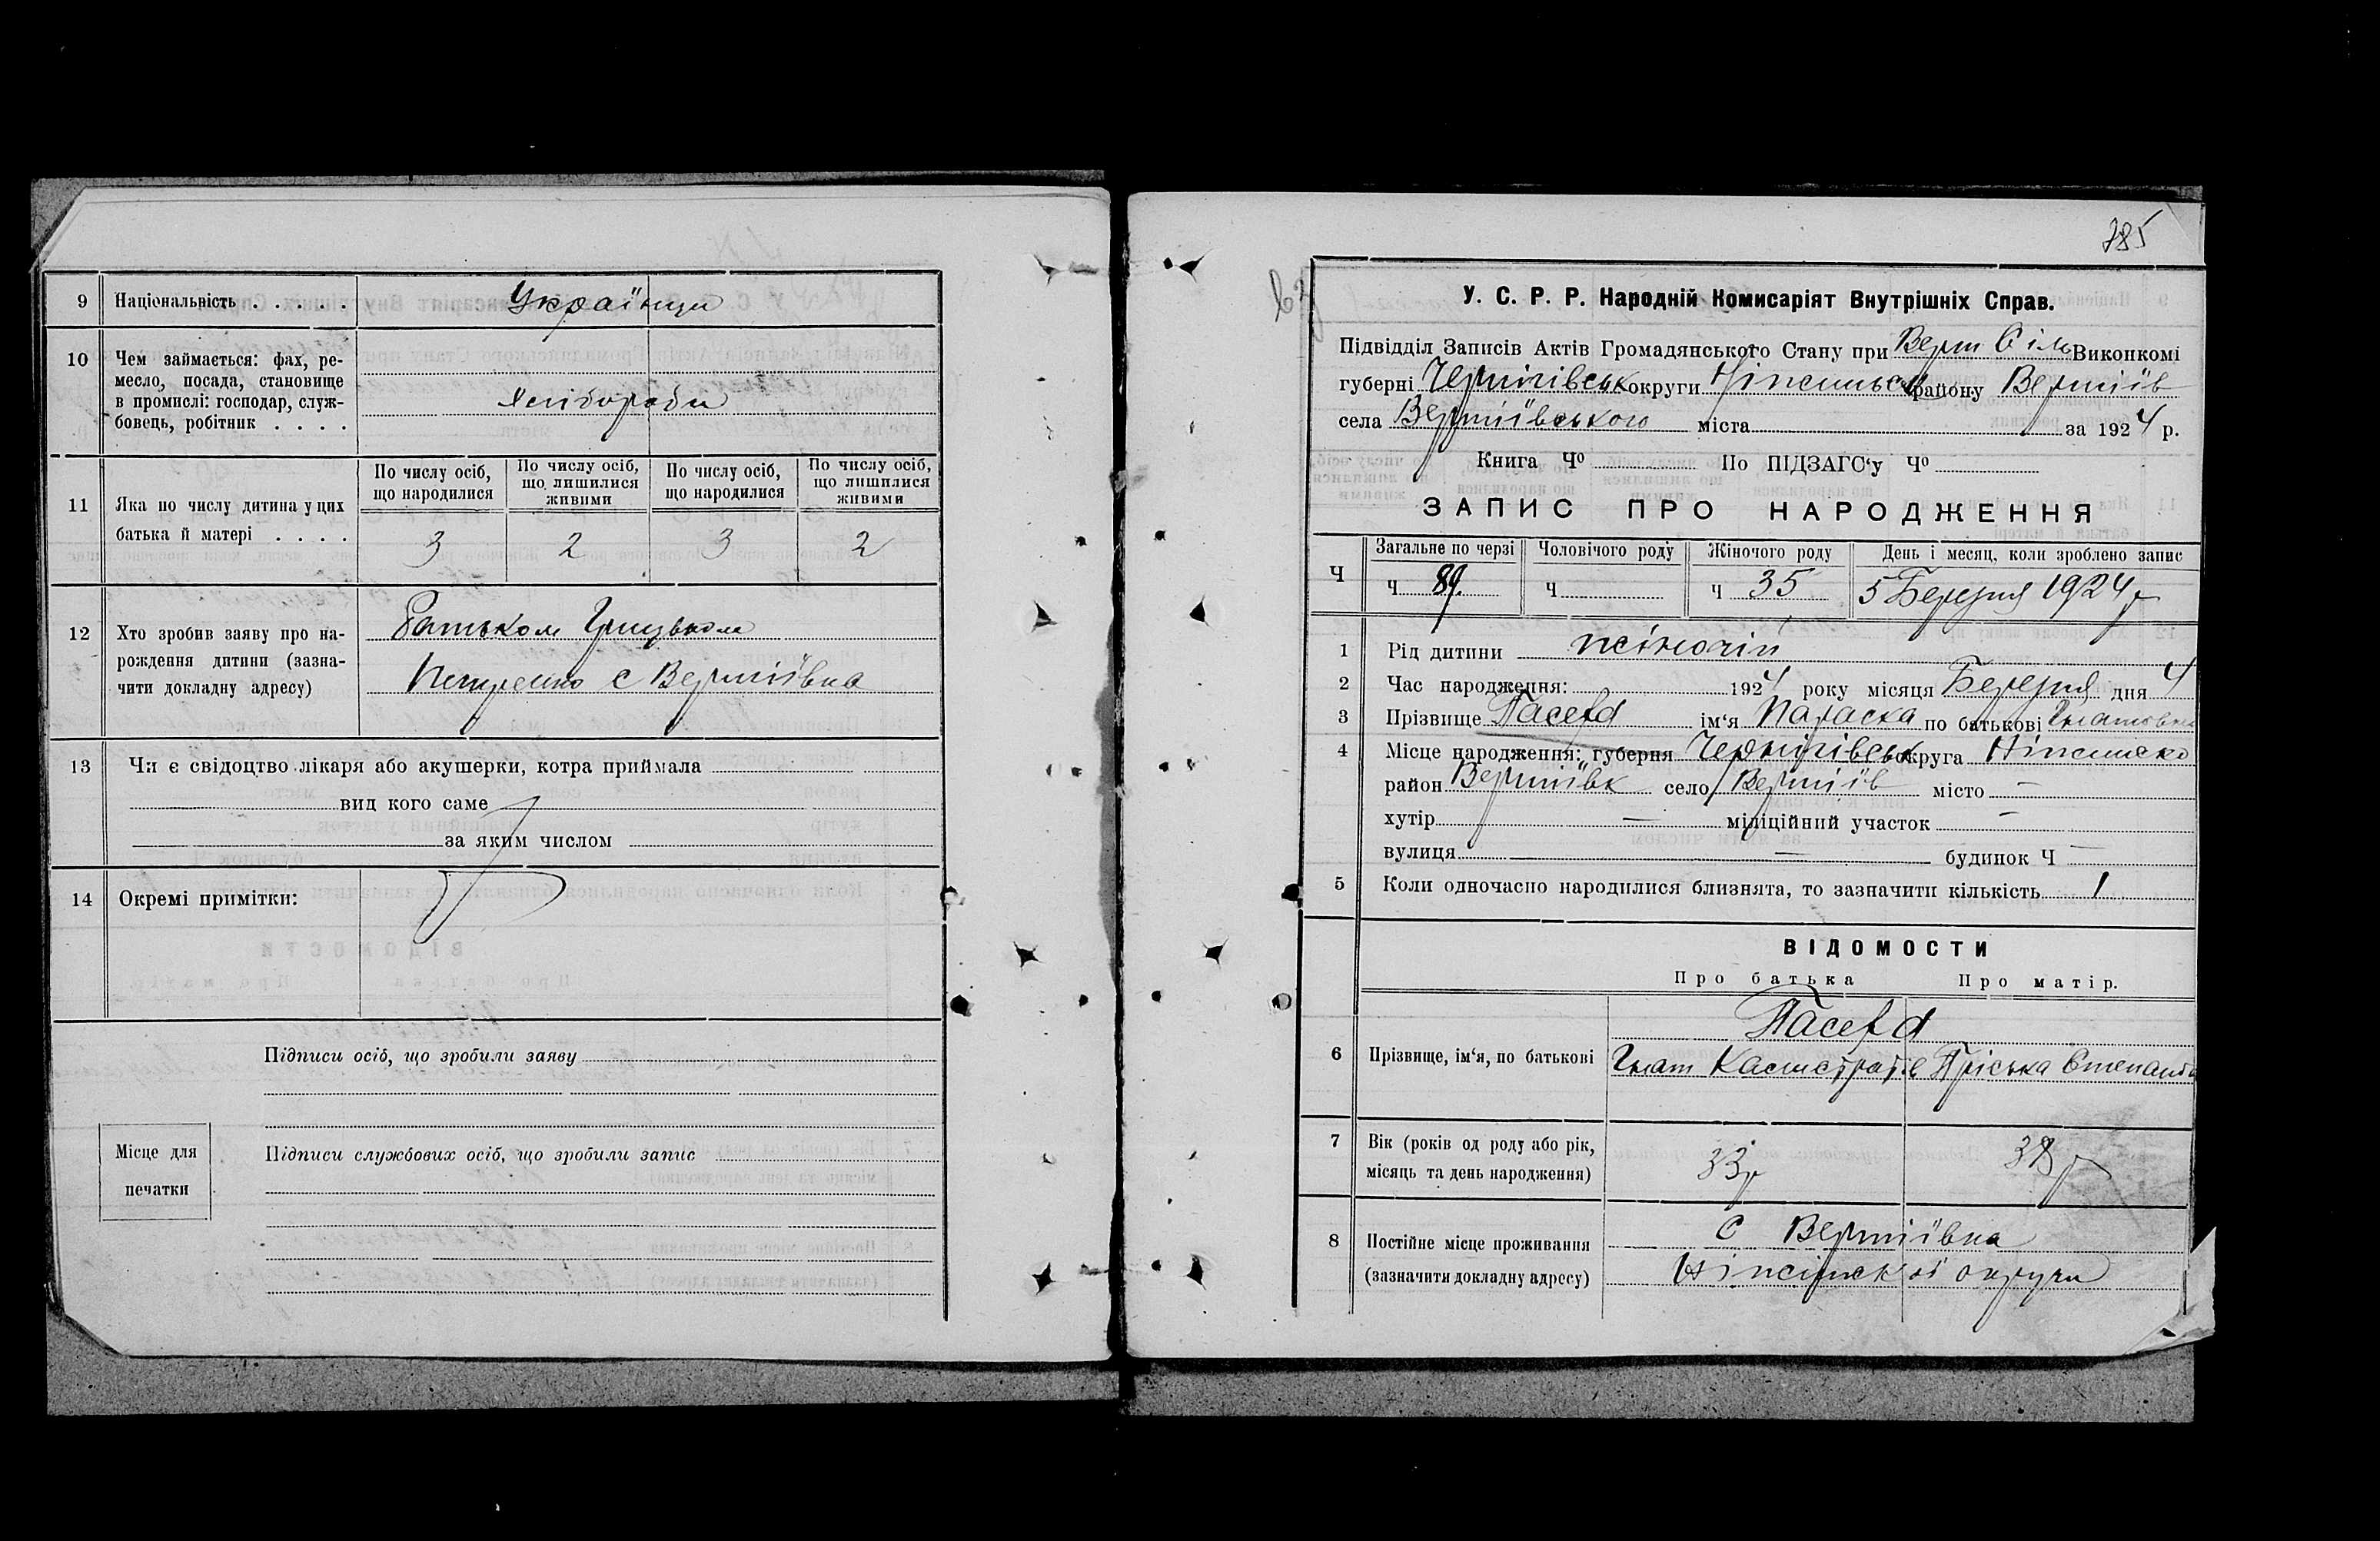 9 Національність . . . . . Українци
10 Чем займається: фах, ре-
месло, посада, становище
в промислі: господар, служ-
бовець, робітник . . . . Хлібороби
11 Яка по числу дитина у цих
батька й матері . . . .
По числу осіб, що народилися
По числу осіб, що лишилися живими
По числу осіб, що народилися
По числу осіб, що лишилися живими
3 2 3 2
12 Хто зробив заяву про на-
рождення дитини (зазна-
чити докладну адресу)
Батьком Грицьком
Петренко с Вертіївка
13 Чи є свідоцтво лікаря або акушерки, котра приймала
вид кого саме
за яким числом
14 Окремі примітки:
Підписи осіб, що зробили заяву
Місце для
печатки
Підписи службових осіб, що зробили запис
385
У. С. Р. Р. Народній Комисаріят Внутрішніх Справ.
Підвідділ Записів Актів Громадянського Стану при Верт Сіль Виконкомі
губерні Чернігівськ округи Ніженськ району Вертіїв
села Вертіївського міста за 1924 р.
Книга Чº По ПІДЗАГС‘у Чº
ЗАПИС ПРО НАРОДЖЕННЯ
Ч Загальне по черзі Чоловічого роду Жіночого роду День і месяц, коли зроблено запис
Ч 89. Ч Ч 35 5 Березня 1924 р
1 Рід дитини жіночій
2 Час народження: 1924 року місяця Березня дня 4
3 Прізвище ім‘я Параска по батькові Гнатовна
4 Місце народження: губерня Чернігівськ округа Ніженско
район Вертіївк село Вертіїв місто —
хутір — міліційний участок —
вулиця — будинок Ч —
5 Коли одночасно народилися близнята, то зазначити кількість 1
ВІДОМОСТИ
Про батька Про матір.
6 Прізвище, ім‘я, по батькові
Гнат Калистратів Пріська Степанів
7 Вік (років од роду або рік,
місяць та день народження)
33 р
8 Постійне місце проживання
(зазначити докладну адресу)
С Вертіївка
Ніженської округи